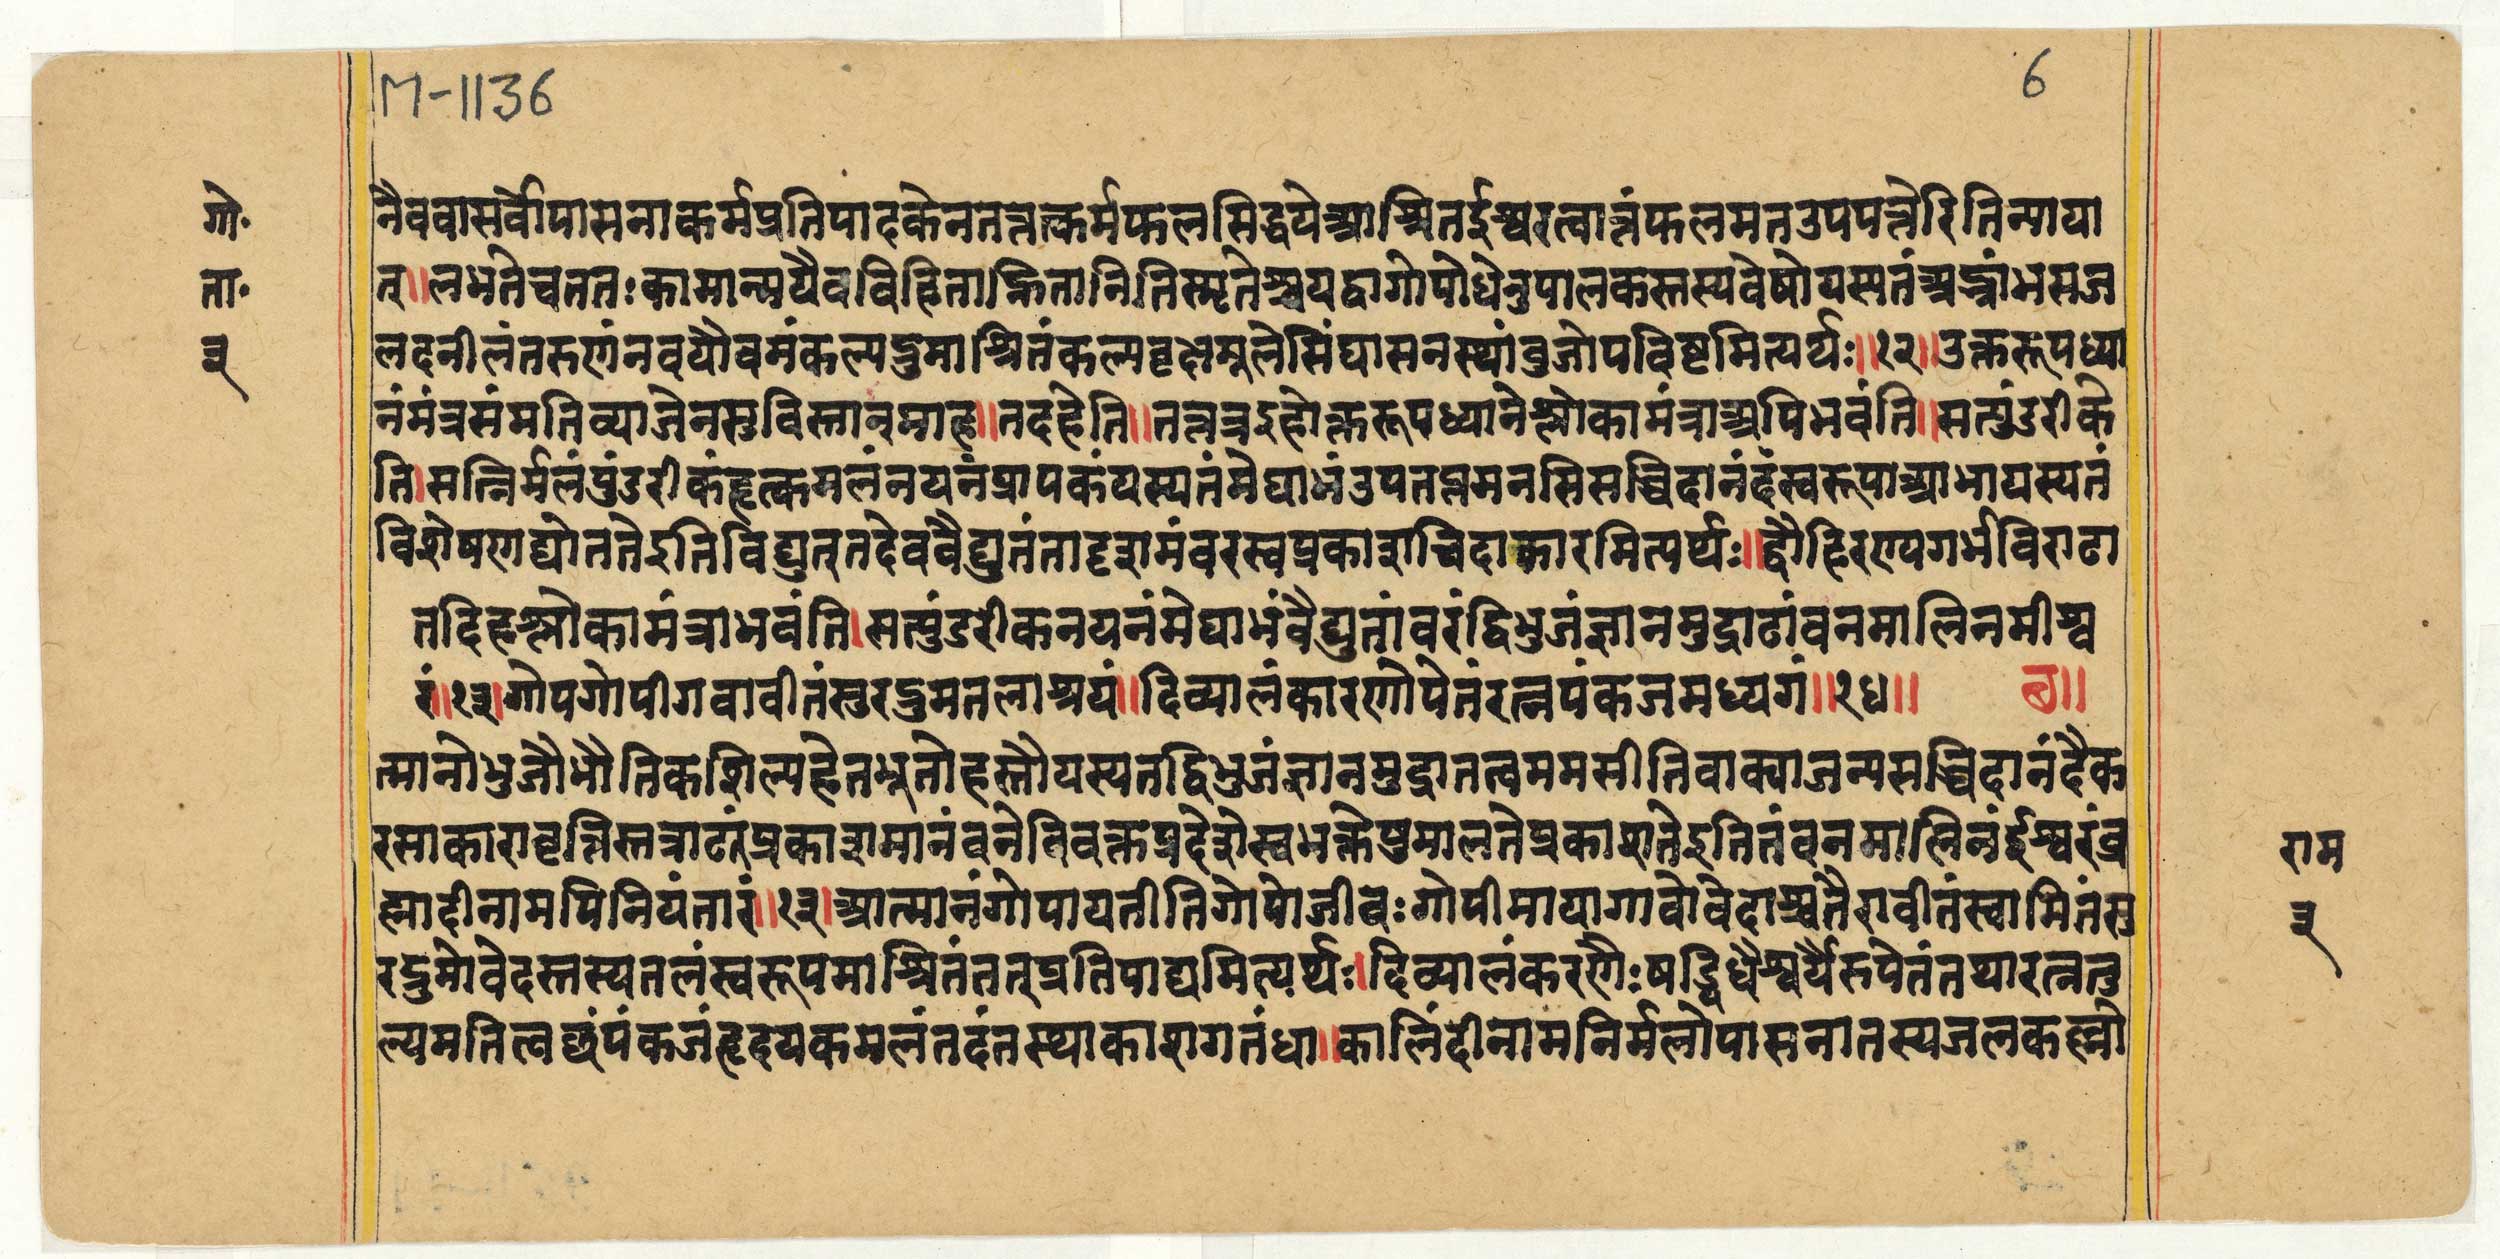 M-1136
6
गो॰
ता॰
३
नैववासर्वोपासनाकर्मप्रतिपादकेनतत्तत्कर्मफलसिद्धयेआश्रितईश्वरत्वात्तंफलमतउपपत्तेरितिन्याया
त्॥लभतेचततःकामान्मयैवविहिताह्नितानितिस्मृतेश्चयद्वागोपोधेनुपालकस्तस्यवेषोयस्यतंअभ्राभंसज
लदनीलंतरुणंनवयौवमंकल्पद्रुमाश्रितंकल्पवृक्षेमूलेसिंघासनस्थांबुजोपविष्टमित्यर्थः॥१२॥उक्तरूपध्या
नंमंत्रसंमतिव्याजेनसुविस्तारमाह॥तदहेति॥तत्तत्रइहोक्तरूपध्यानेश्लोकामंत्राअपिभवंति॥सत्पुंडरीके
ति।सन्निर्मलंपुंडरीकंहृत्कमलंनयनंप्रापकंयस्यतंमेघाभंउपतप्तमनसिसच्चिदानंदस्वरूपाआभायस्यतं
विशेषणद्योततेइतिविद्युत्तदेववैद्युतंतादृशमंबरस्वप्रकाशचिदाकारमित्यर्थः॥द्वौहिरण्यगर्भविराढा
तदिहश्लोकामंत्राभवंति।सत्पुंडरीकनयनंमेघाभंवैद्युतांबरंद्विभुजंज्ञानमुद्राढांवनमालिनमीश्व
रं॥१३।गोपगोपीगवावीतंसुरद्रुमतलाश्रयं॥दिव्यालंकारणोपेतंरत्नपंकजमध्यगं॥१४॥ छ॥
त्मानोभुजौभौतिकशिल्पहेतभूतोहस्तौयस्यतद्विभुजंज्ञानमुद्रातत्वममसीतिवाक्याजन्यसच्चिदानंदैक
रसाकारावृत्तिस्तत्राढंतंप्रकाशमानंवनेविवक्तप्रदेशेस्वभक्तेषुमालतेप्रकाशतेइतितंवनमालिनंईश्वरंब्र
ह्मादीनामपिनियंतारं॥१३।आत्मानंगोपायतीतिगोपोजीवःगोपीमायागावोवेदाश्चतैरावीतंस्वामितंसु
रद्रुमोवेदस्तस्यतलंस्वरूपमाश्रितंतत्प्रतिपाद्यमित्यर्थः।दिव्यालंकरणैःषड्विधैश्वर्यैरुपेतंतथारत्नतु
ल्यमतित्वछंपंकजंहृदयकमलंतदंतस्थाकाशगतंधा॥कालिंदीनामनिर्मलोपासनातस्यजलकल्लो
राम
३